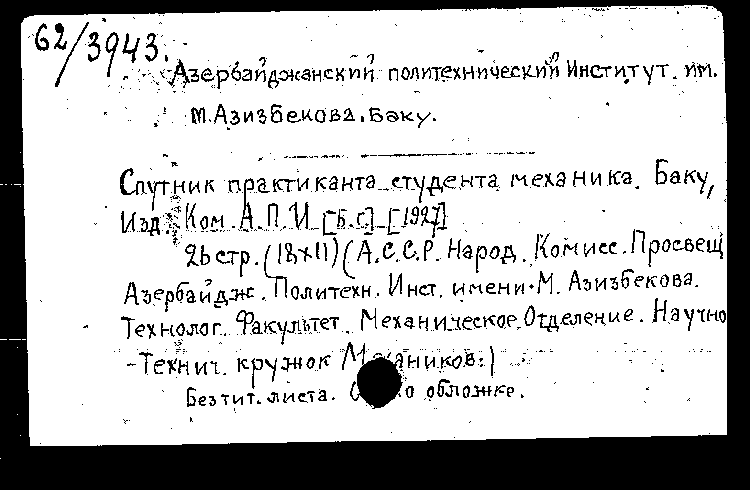 62/3943.
Азербайджанский политехнический Институт. им.
М.Азизбекова. Баку.
Спутник практиканта студента механика. Баку,
Изд. Ком. А.П.И. [б.г.] [1927]
26 стр. (18×11) (А.С.С.Р. Народ. Комисс. Просвещ
Азербайдж. Политехн. Инст. имени М. Азизбекова.
Технолог. Факультет. Механическое Отделение. Научно
-Технич. кружок Механиков.)
Без тит. листа. обложке.